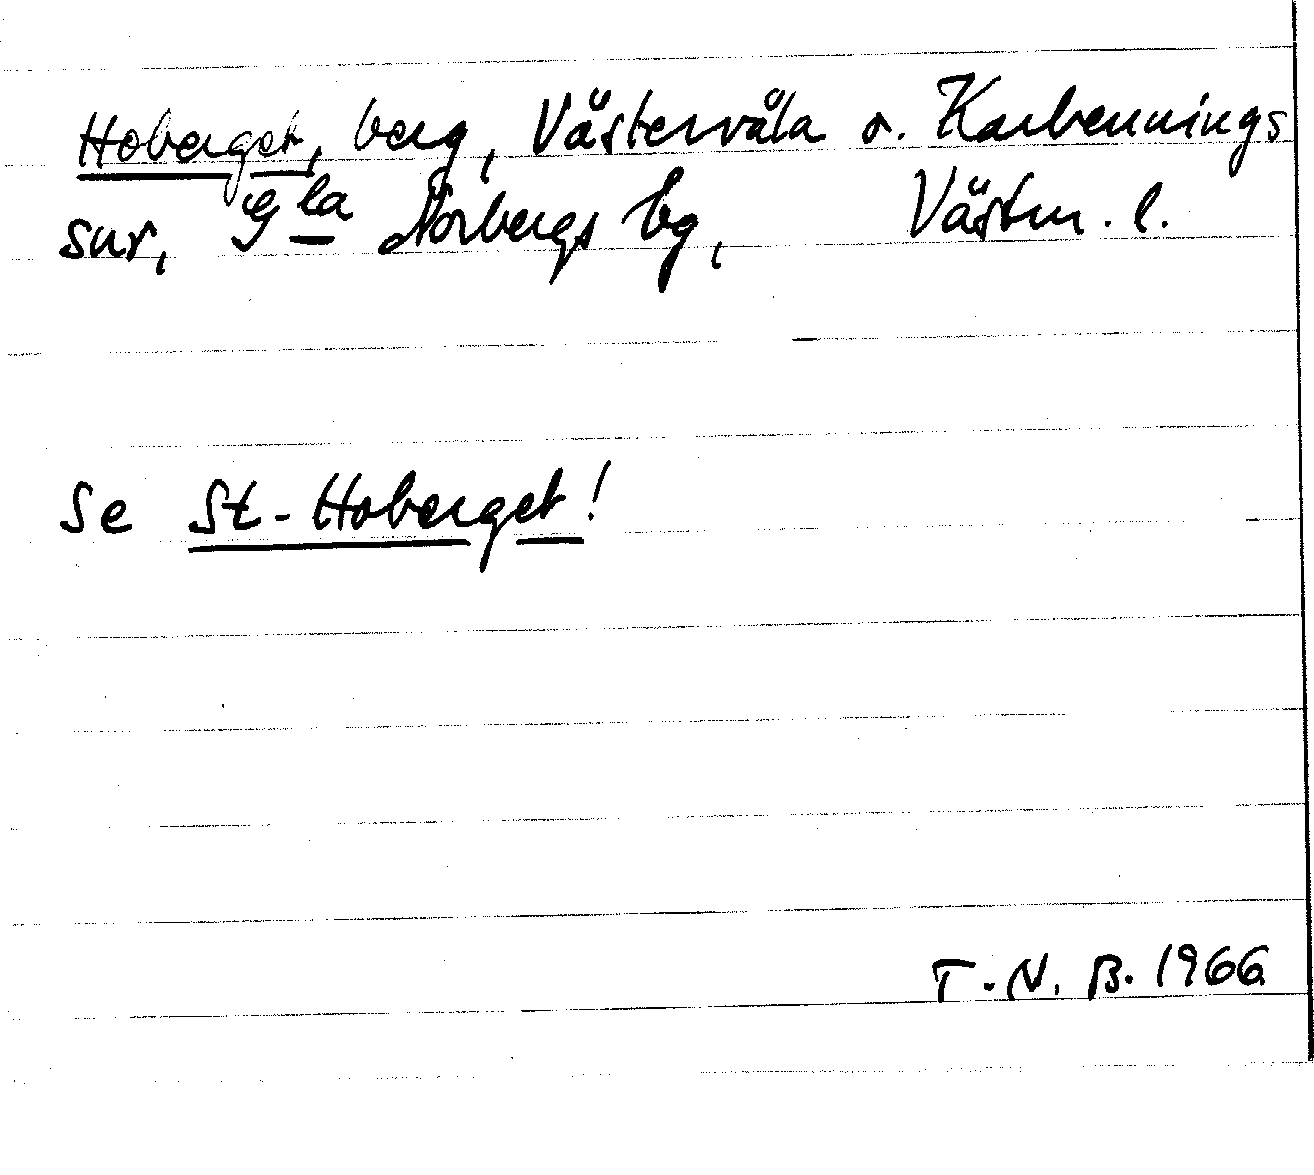 Hoberget, berg, Västervåla o. Karbennings
snr, Gla Norbergs bg, Västm. l.
Se St-Hoberget!
T.N.B. 1966